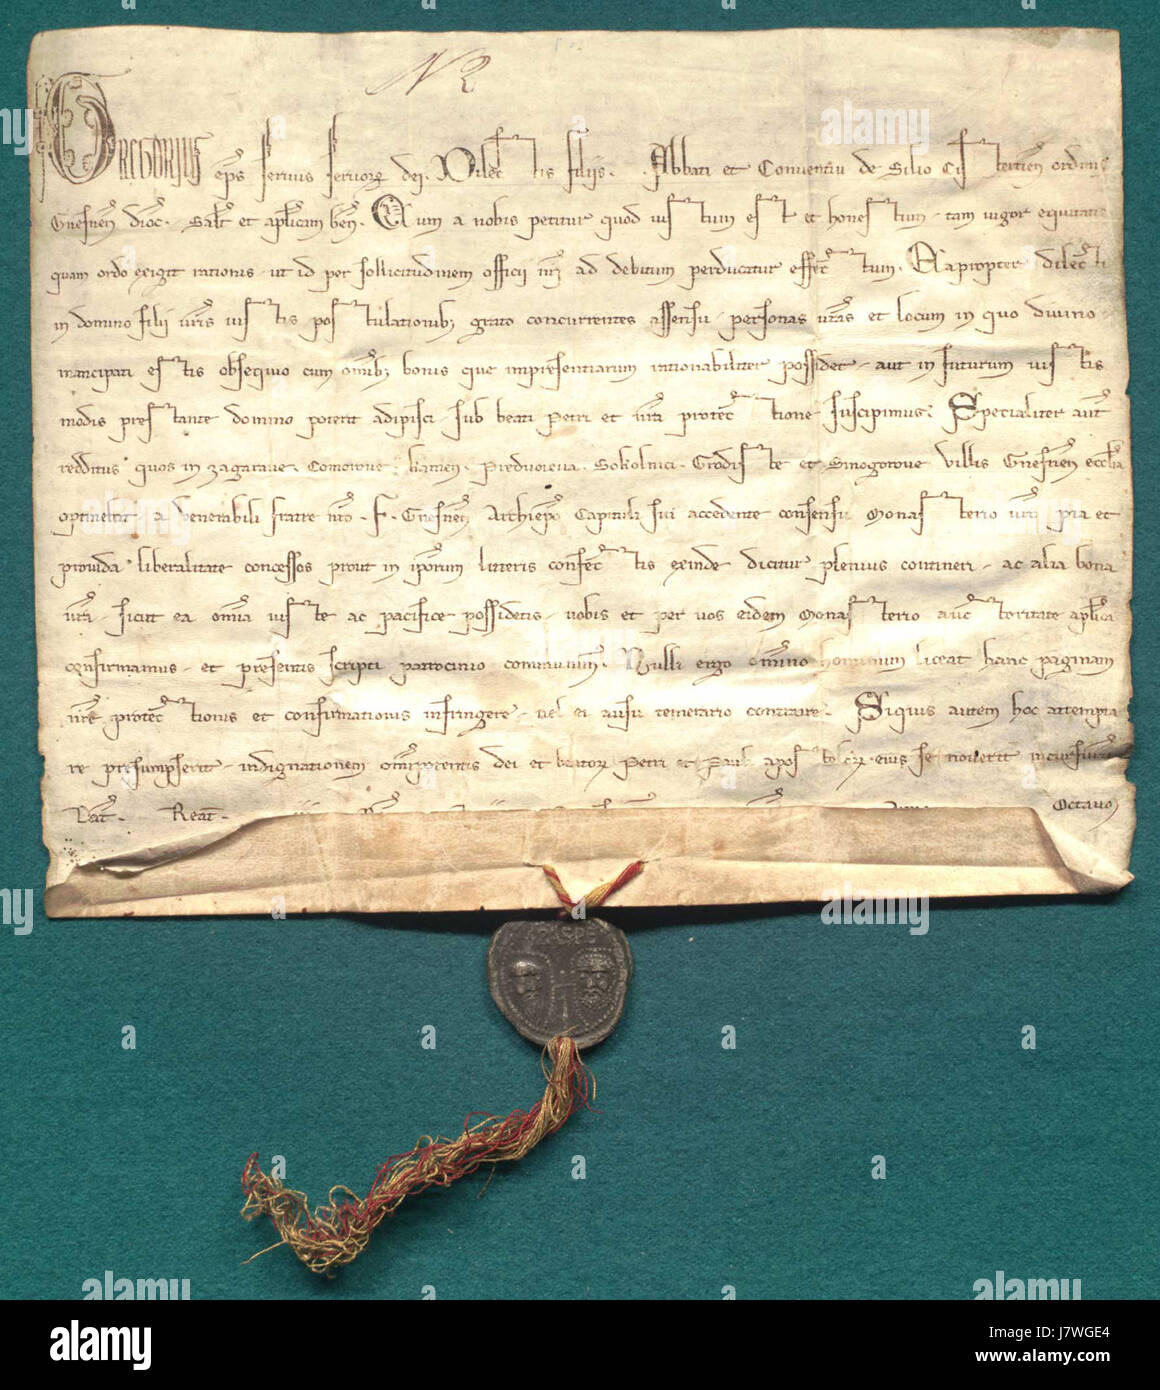 N 2
GREGORIUS eps servus servorꝝ dei. Dilectis filiis . . Abbati et Conventui de Silio Cistertien ordinis
Gneznen dioc. Salt et aplicam ben. Cum a nobis petitur quod iustum est et honestum, tam vigor equitatis
quam ordo exigit rationis, ut id per sollicitudinem officii nri ad debitum perducatur effectum. Eapropter dilecti
in domino filii vris iustis postulationibꝫ grato concurrentes assensu, personas vras et locum in quo divino
mancipati estis obsequio cum omibꝫ bonis que impresentiarum rationabiliter possidet, aut in futurum iustis
modis prestante domino poterit adipisci, sub beati Petri et nra protectione suscipimus. Specialiter aut
redditus quos in Zagarave, Comorove, kamen, Predvoreva, Sokolnici, Grodiste et Smogorove villis Gneznen ecclia
optinebat a venerabili fratre nro . F. Gneznen Archiepo Capituli sui accedente consensu Monasterio vro pia et
provida liberalitate concessos prout in iporum litteris confectis exinde dicitur plenius contineri, ac alia bona
vra, sicut ea omia iuste ac pacifice possidetis, vobis et per vos eidem Monasterio auctoritate aplica
confirmamus, et presentis scripti patrocinio communimus. Nulli ergo omnino hominum liceat hanc paginam
nre protectionis et confirmationis infringere, vel ei ausu temerario contraire. Siquis autem hoc attempta
re presumpserit, indignationem omipotentis dei et beatorꝝ Petri et Pauli apostolorꝝ eius se noverit incursurum.
Dat. Reat. Octavo
SPASPE
alamy
a
alamy
J7WGE4
www.alamy.com